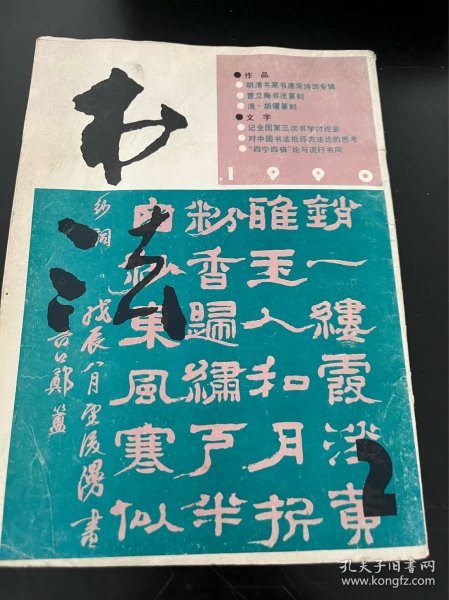 书法
●作品
●明清书家书唐宋诗词专辑
●曹立庵书法篆刻
●清·胡钁篆刻
●文字
●记全国第三次书学讨论会
●对中国书法批评方法论的思考
●“四宁四毋”论与流行书风
.1990
2
銷一縷霞淡黄
玉人和月折
粉香歸繡户
東風寒似
戊辰八月望後漫書
鄭簠
孔夫子旧书网
www.kongfz.com